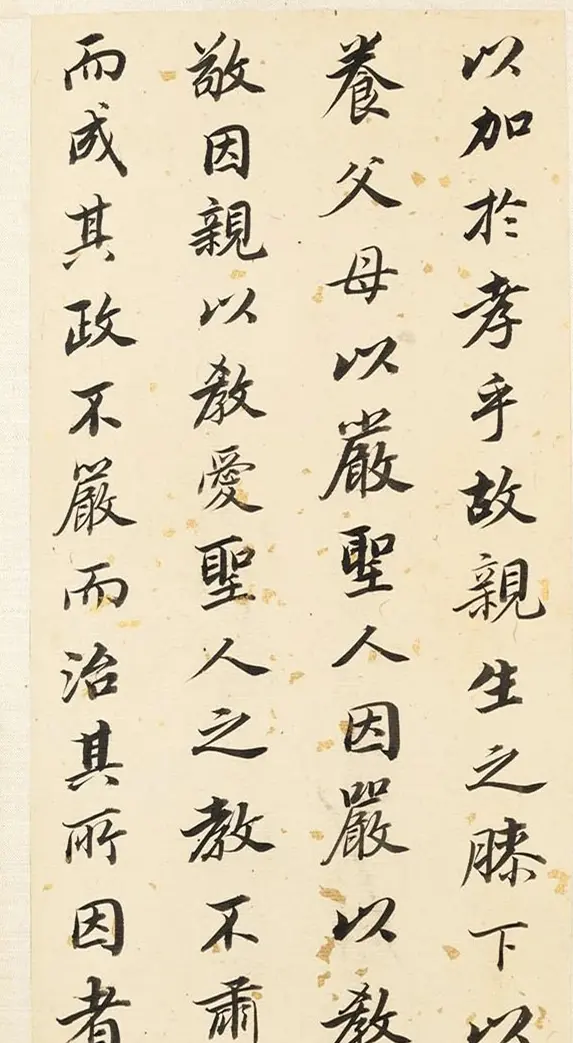 以加於孝乎故親生之膝下以
養父母以嚴聖人因嚴以教
敬因親以教愛聖人之教不肅
而成其政不嚴而治其所因者